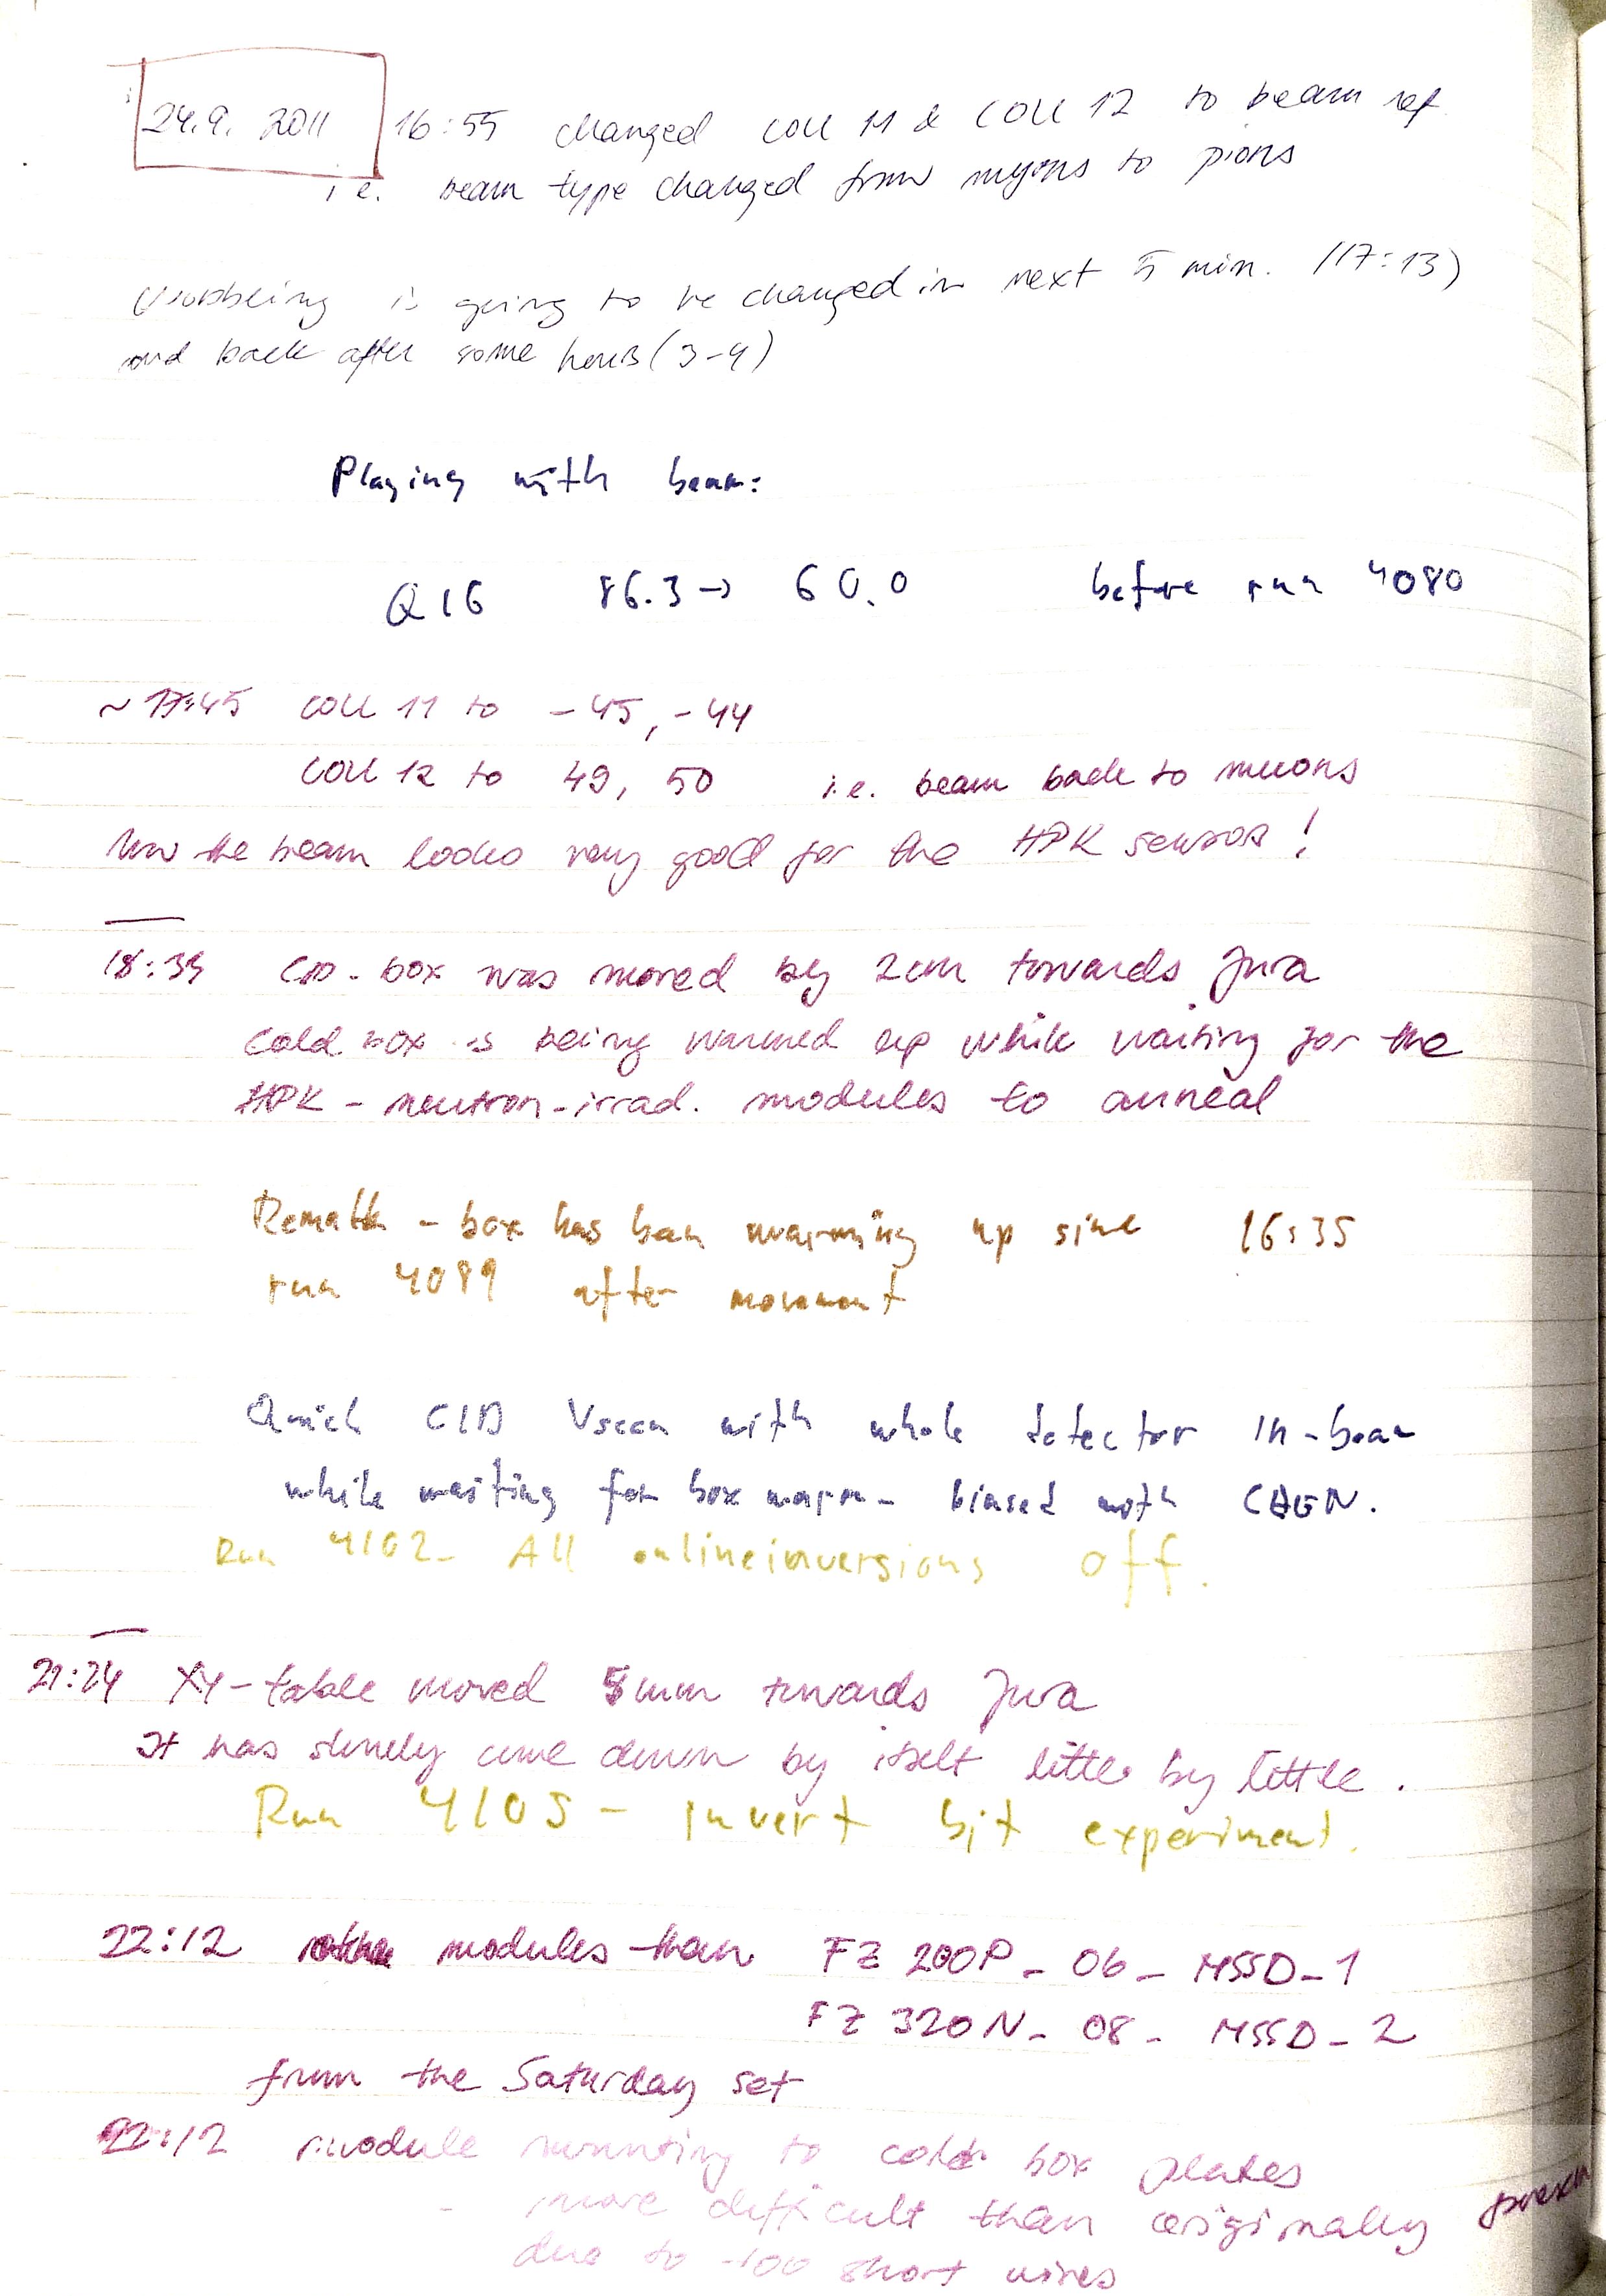 24.9. 2011 16:55 changed COLL 11 & COLL 12 to beam ref
i.e. beam type changed from myons to pions
is going to be changed in next 5 min. (17:13)
and back after some hours (3-4)
Playing with beam:
Q16 86.3 → 60.0 before run 4080
~ 17:45 COLL 11 to -45, -44
COLL 12 to 49, 50 i.e. beam back to muons
Now the beam looks very good for the HPK sensors!
18:39 CID-box was moved by 2cm towards Jura
Cold box is being warmed up while waiting for the
HPK-neutron-irrad. modules to anneal
Remark - box has ban warming up since 16:35
run 4089 after movement
Quick CID Vscan with whole detector in-beam
while waiting for box warm- biased with CAEN.
Run 4102- All onlineinversions off.
21:24 XY-table moved 5mm towards Jura
It has slowly come down by itself little by little.
Run 4105 - invert bit experiment.
22:12 modules than FZ 200P - 06 - MSSD-1
FZ 320N- 08 - MSSD-2
from the Saturday set
22:12 module mounting to cold box plates
- more difficult than originally
due to -100 short wires